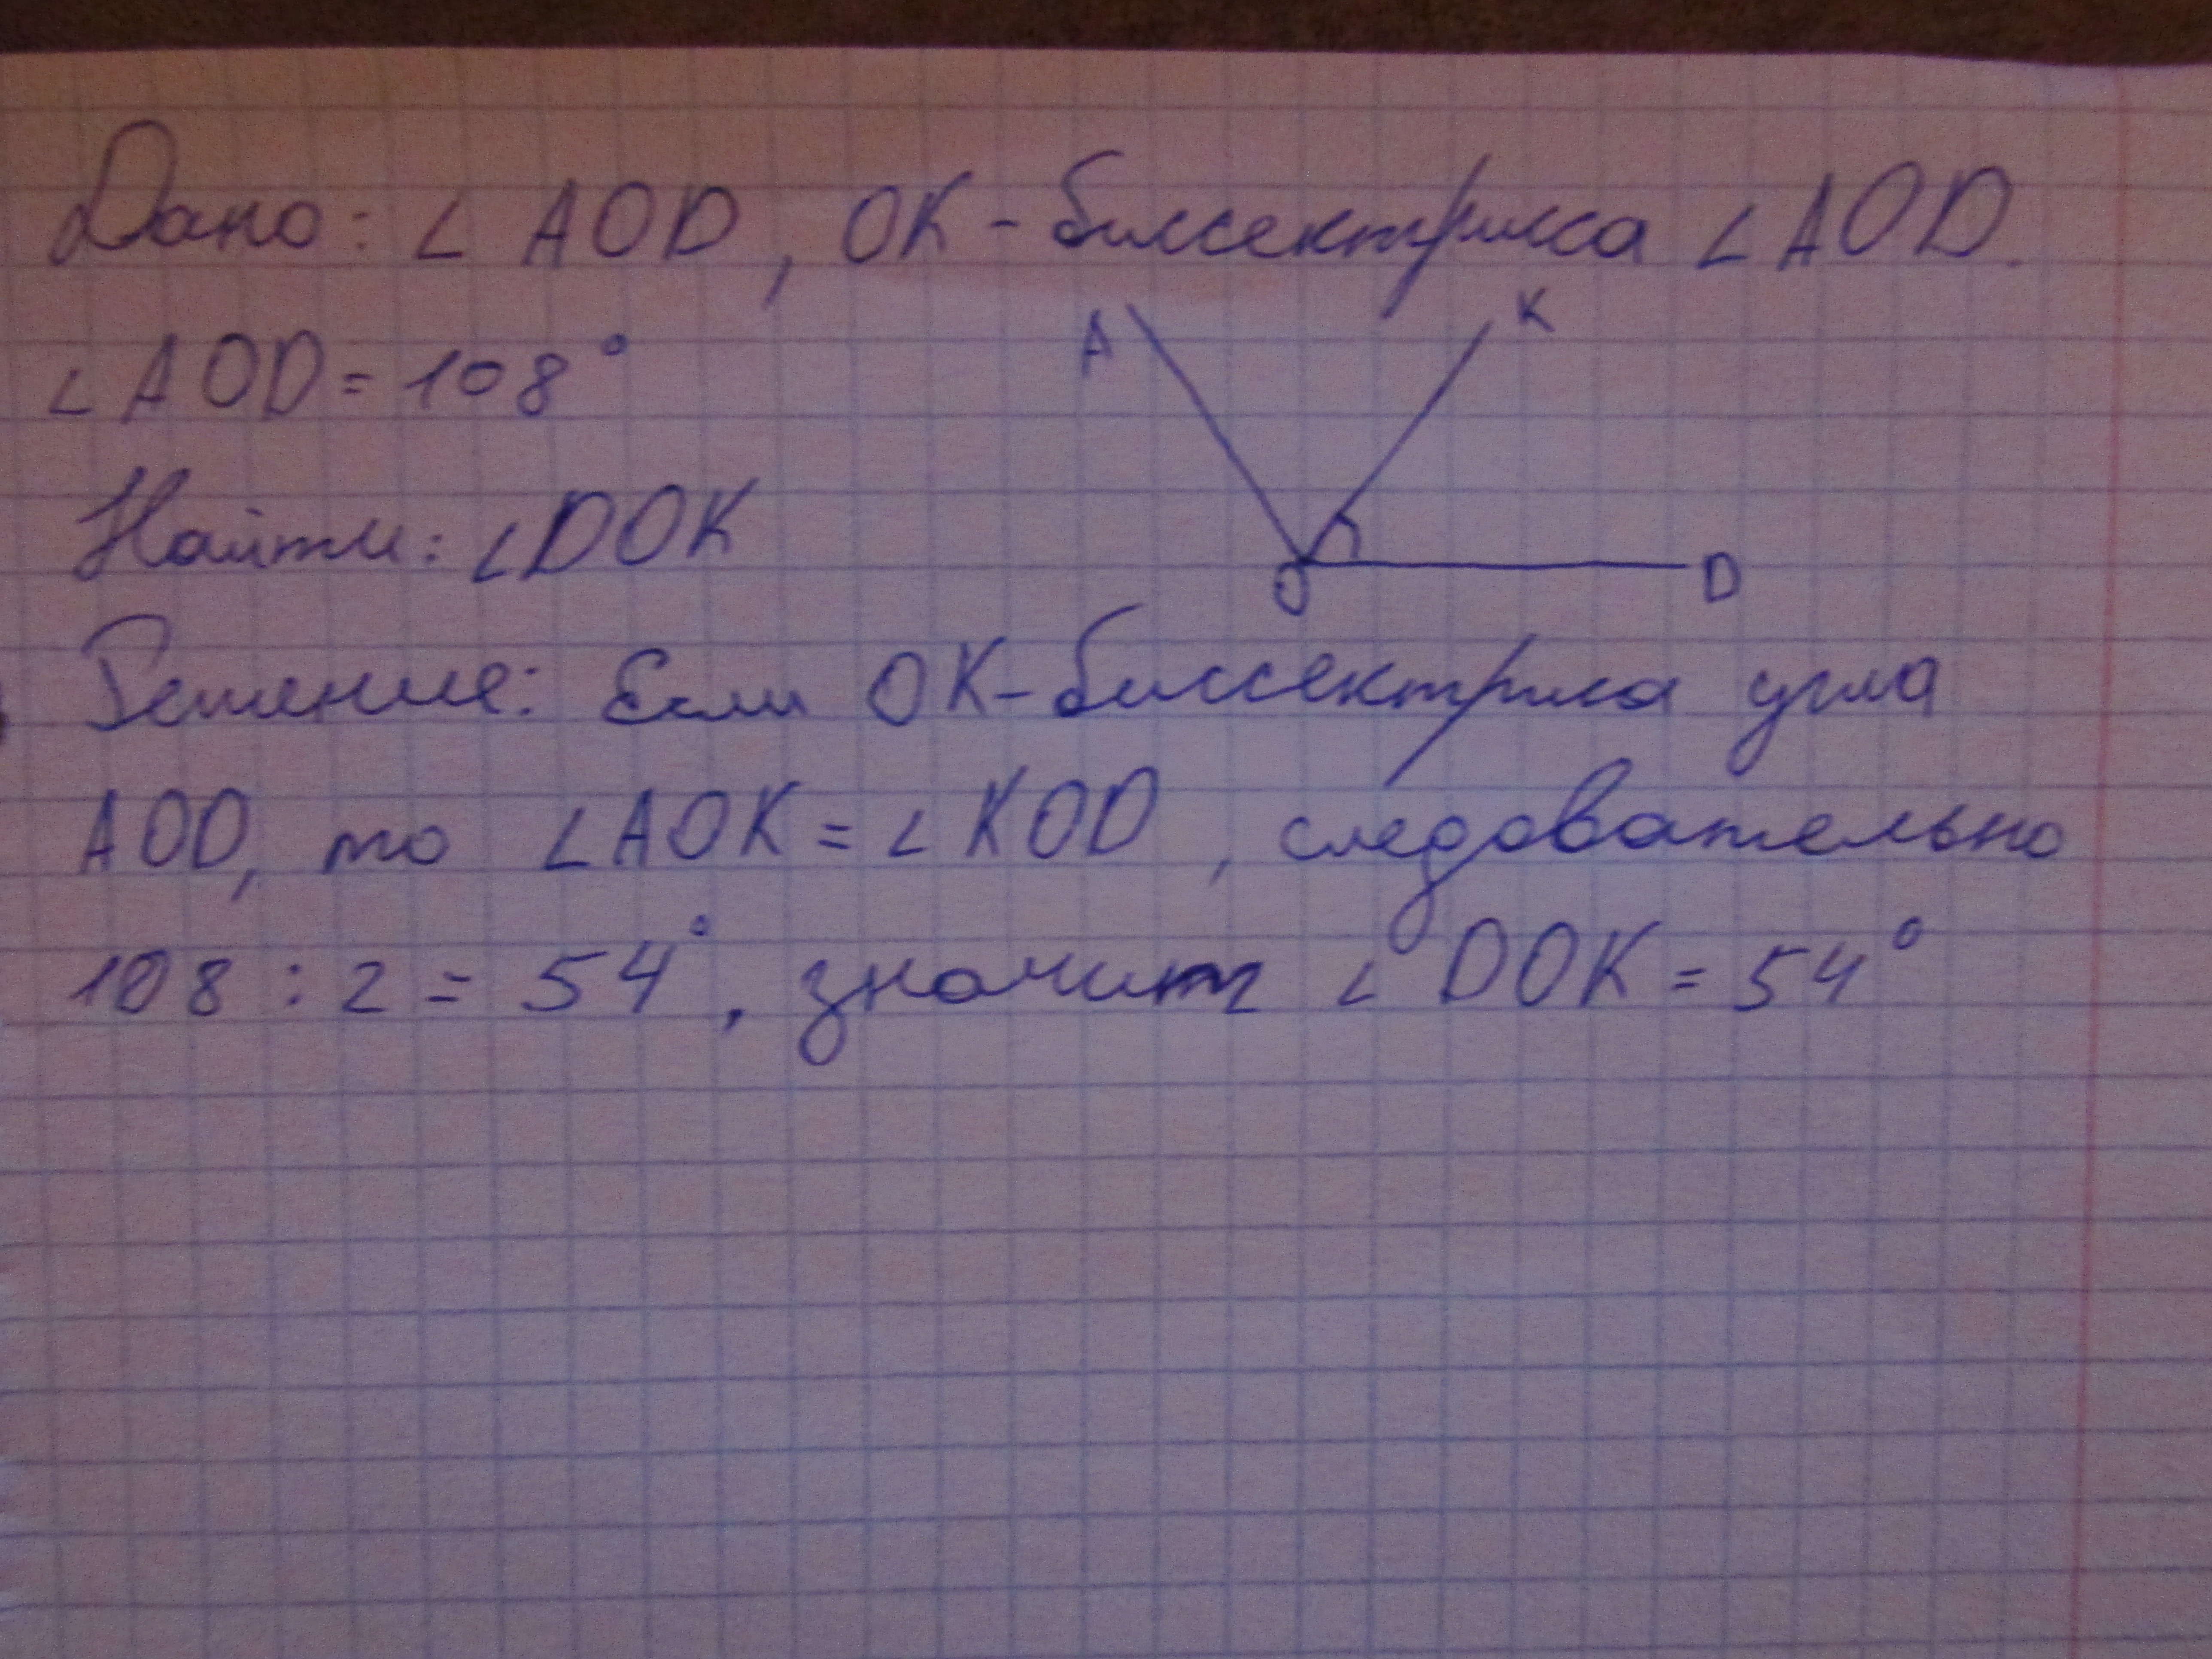 Дано: ∠ AOD, OK - биссектрисса ∠AOD.
∠AOD = 108°
A
K
O
D
Найти: ∠DOK
Решение: Если OK - биссектриса угла
AOD, то ∠AOK = ∠KOD, следовательно
108 : 2 = 54°, значит ∠DOK = 54°